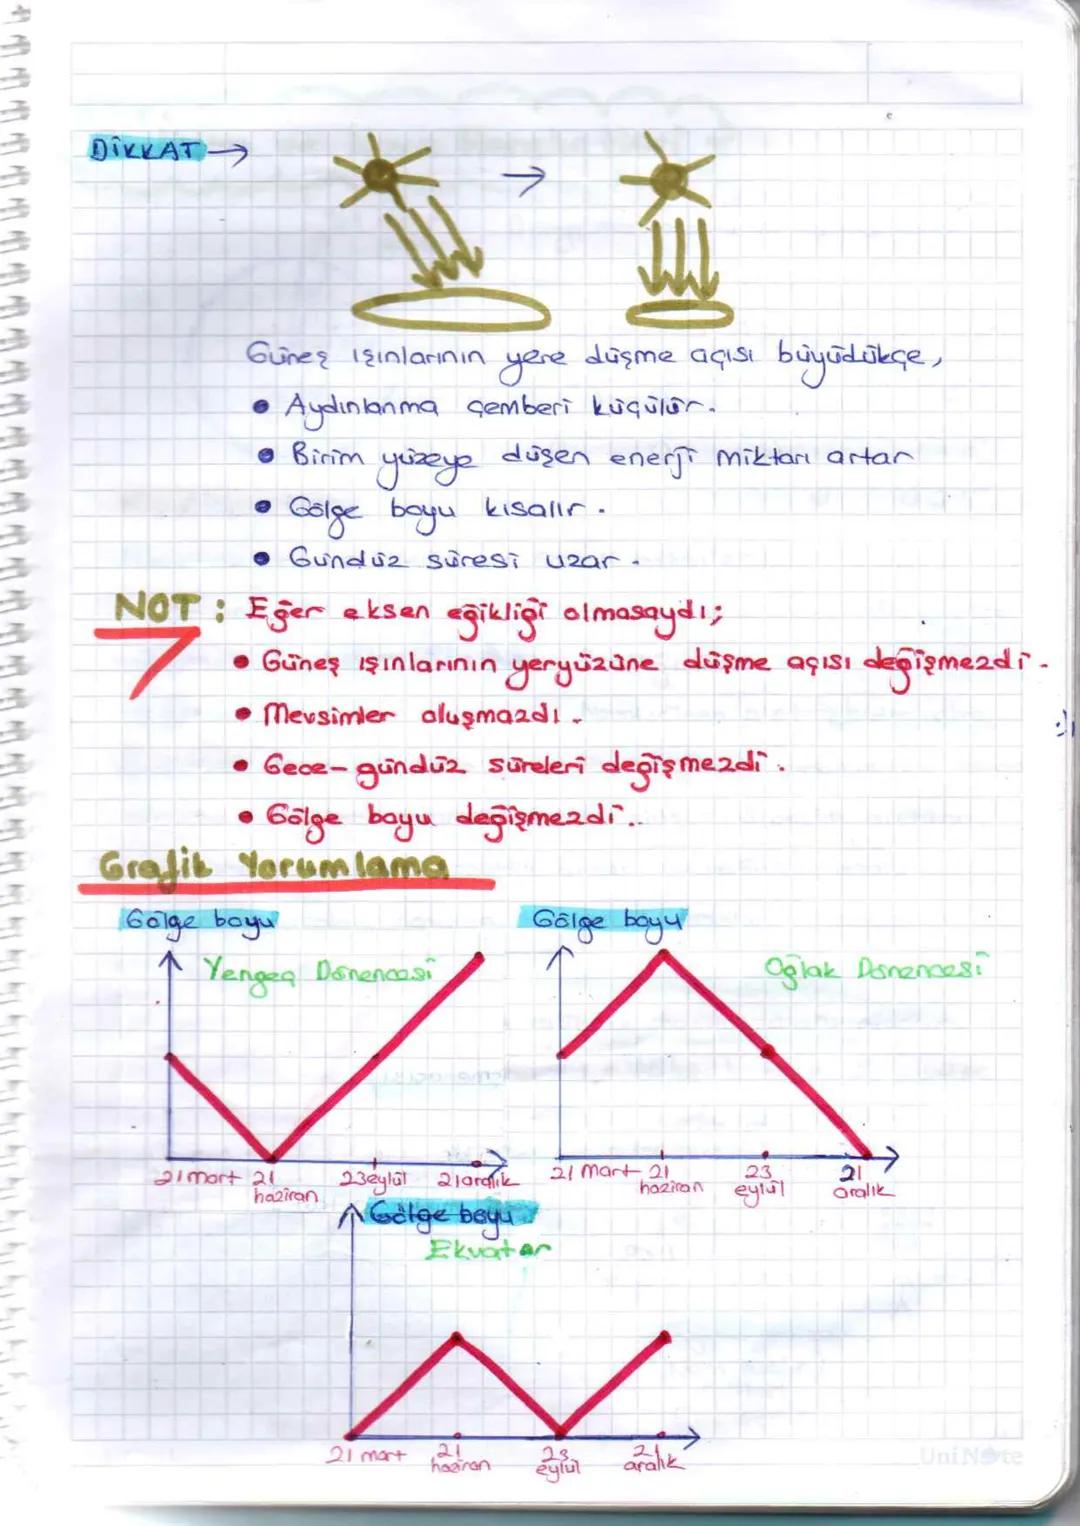 DİKKAT →
Güneş ışınlarının yere düşme açısı büyüdükçe,
• Aydınlanma çemberi küçülür.
• Birim yüzeye düşen enerji miktarı artar
• Gölge boyu kısalır.
• Gündüz süresi uzar.
NOT : Eğer eksen eğikliği olmasaydı;
• Güneş ışınlarının yeryüzüne düşme açısı değişmezdi.
• Mevsimler oluşmazdı.
• Gece-gündüz süreleri değişmezdi.
• Gölge boyu değişmezdi..
Grafik Yorumlama
Gölge boyu
Yengeç Dönencesi
21 mart 21 haziran 23 eylül 21 aralık
Gölge boyu
Oğlak Dönencesi
21 Mart 21 haziran 23 eylül 21 aralık
Gölge boyu
Ekvator
21 mart 21 haziran 23 eylül 21 aralık
UniNote